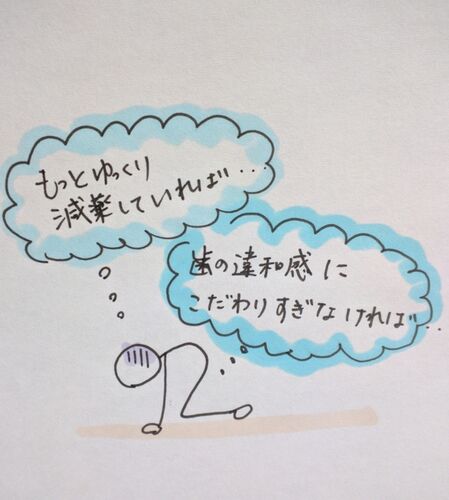 もっとゆっくり
減薬していれば…
歯の違和感に
こだわりすぎなければ…